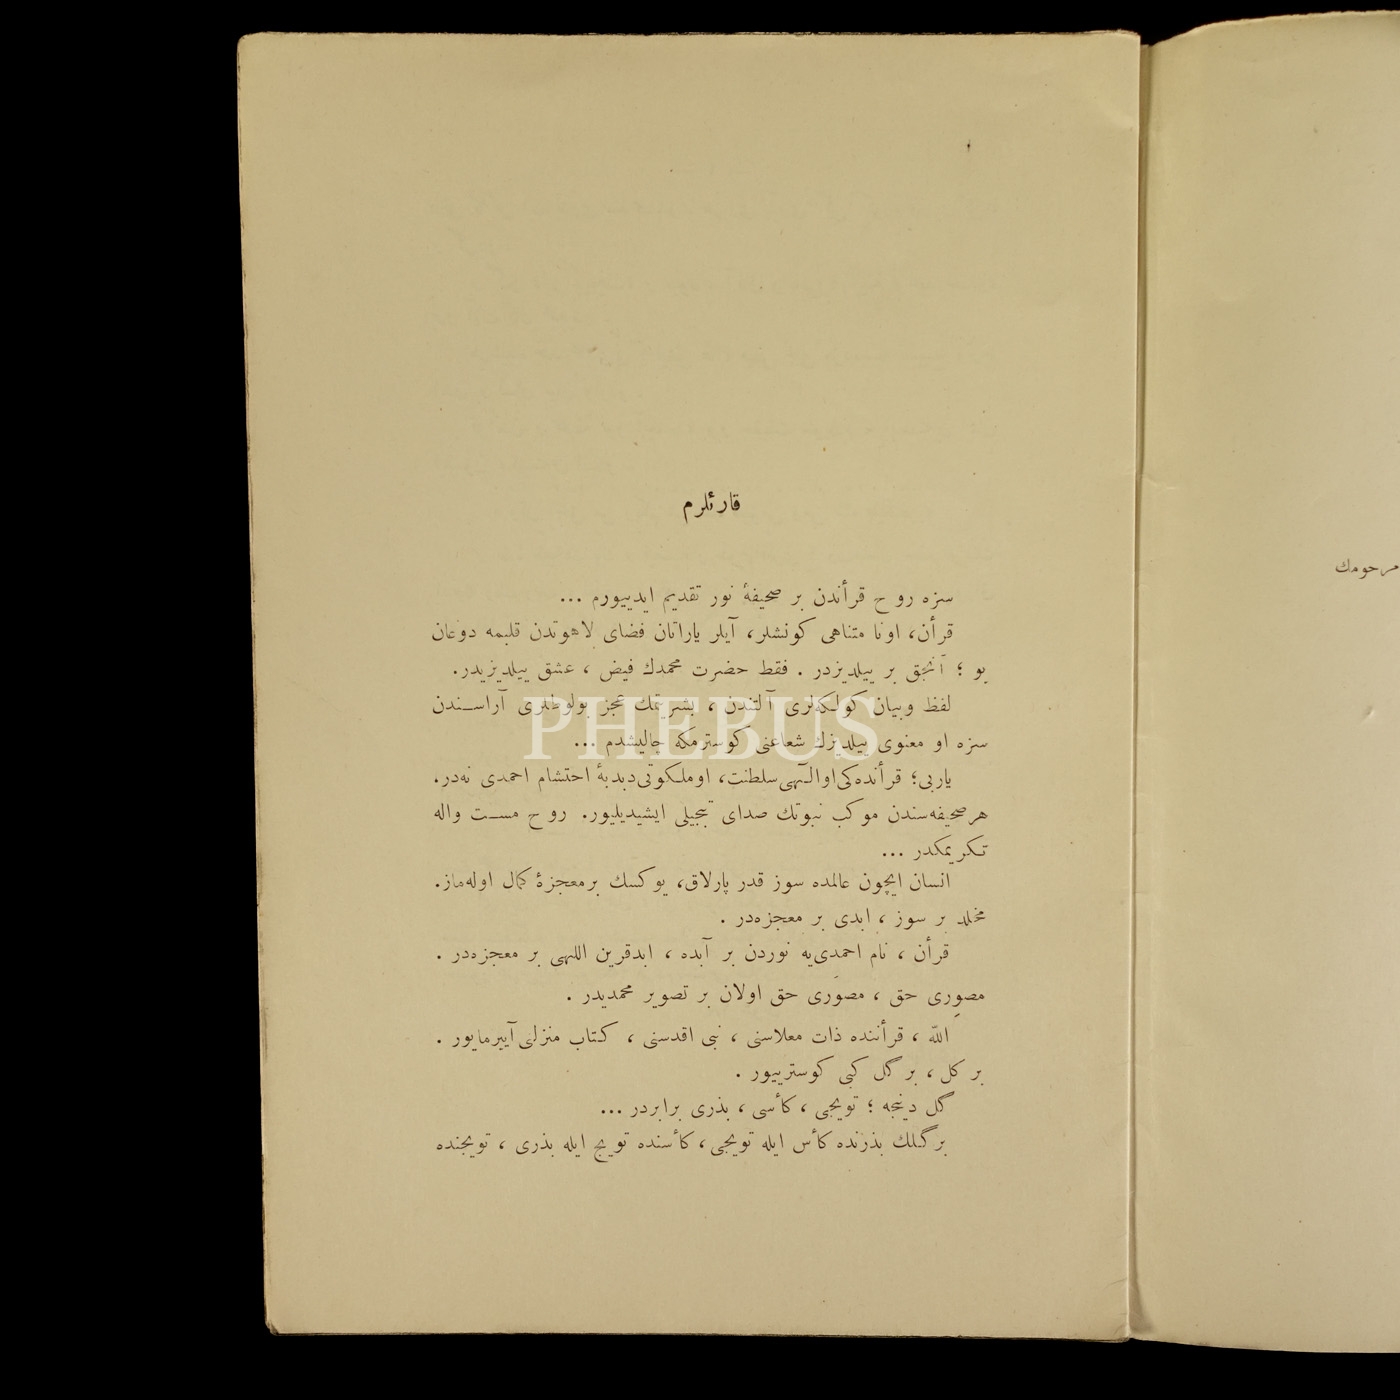 قارئلرم
سزه روح قرأندن بر صحیفهٔ نور تقدیم ایدییورم ...
قرأن، اونا متناهی کونشلر، آیلر یاراتان فضای لاهوتدن قلبمه دوغان
بو ؛ آنجق بر ییلدیزدر . فقط حضرت محمدك فیض ، عشق ییلدیزیدر.
لفظ وبیان کولکه‌لری آلتندن ، بشریتك عجز بولوطلری آراسـندن
سزه او معنوی ییلدیزك شعاعنی کوسترمکه چالیشدم ...
یاربی؛ قرأنده‌کی اوالـٓهی سلطنت، اوملکوتی دبدبهٔ احتشام احمدی نه‌در.
هرصحیفه‌سندن موکب نبوتك صدای تبجیلی ایشیدیلیور. روح مسـت واله
تکریمکدر ...
انسان ایچون عالمده سوز قدر پارلاق، یوکسك برمعجزهٔ کمال اوله‌ماز.
مخلد بر سوز ، ابدی بر معجزه‌در .
قرأن ، نام احمدی‌یه نوردن بر آبده ، ابدقرین اللهی بر معجزه‌در .
مصوِری حق ، مصوَری حق اولان بر تصویر محمدیدر .
الله ، قرأننده ذات معلاسنی ، نبی اقدسنی ، کتاب منزلی آییرمایور .
بر کل ، بر گل کبی کوسترییور .
گل دینجه ؛ تویجی ، کأسی ، بذری برابردر ...
برگلك بذرنده کأس ایله تویجی، کأسنده تویج ایله بذری ، تویجنده
مرحومك
PHEBUS